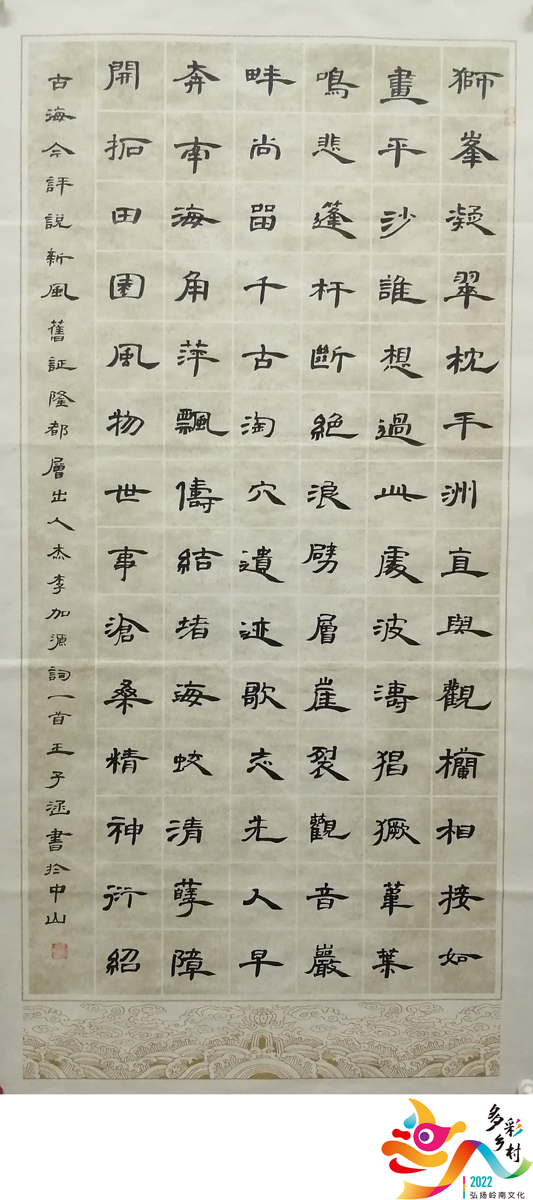 獅峯凝翠枕平洲直與觀欄相接如
畫平沙誰想過此處波濤猖獗葦葉
鳴悲篷杆斷絕浪劈層崖裂觀音巖
畔尚留千古淘穴遺迹歌志先人早
奔南海角萍飄儔結堵海蛟清孽障
開拓田園風物世事滄桑精神衍紹
古海今評說新風舊証隆都層出人杰李加源詞一首王子涵書於中山
多彩乡村
2022
弘扬岭南文化